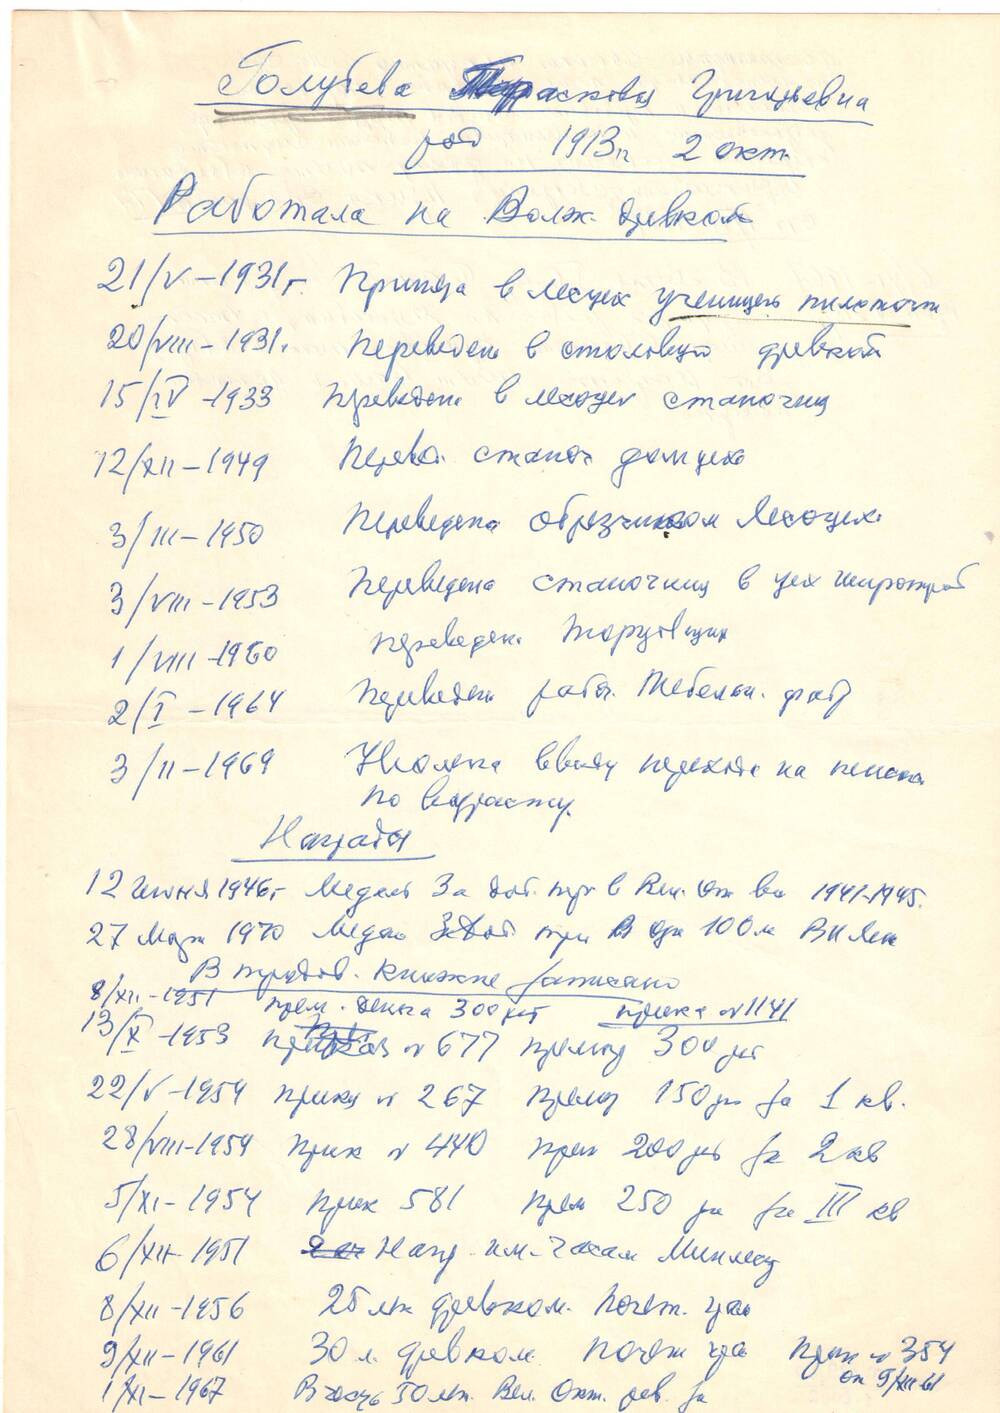 Голубева Парасковья Григорьевна
род 1913г 2 окт.
Работала на Волж. древком
21/V – 1931г. Принята в лесоцех ученицей
20/VIII – 1931г. Переведена в столовую древком
15/IV – 1933 Переведена в лесоцех станочниц
12/XII – 1949 Перевед. станоч домцеха
3/III – 1950 Переведена обрезчиком Лесоцех.
3/VIII – 1953 Переведена станочниц в цех ширпотреб
1/VIII – 1960 Переведена Торцовщик
2/I – 1964 Переведена работ. Мебельн. фаб
3/II – 1969 Уволена ввиду перехода на пенсию
по возрасту.
Награды
12 июня 1946г Медаль За доб. тр в Вел. От во 1941-1945.
27 Март 1970 Медаль За Доб. тр В озн 100 л ВИ Лен
В трудов. книжке записано
8/XII – 1951 прем. деньга 300 руб приказ № 1141
13/X – 1953 Приказ № 677 премир 300 руб
22/V – 1954 приказ № 267 Премир 150 р за 1 кв.
28/VIII – 1954 Приказ № 440 прем 200 руб за 2 кв
5/XI – 1954 Приказ 581 Прем 250 р за III кв
6/XII – 1951 Нагр. им. часам
8/XII – 1956 25 лет древком. Почет. гра
9/XII – 1961 30 л. древком. Почет гра Приказ № 354
от 9/XII 61
1/XI – 1967 В честь 50 лет. Вел. Окт. рев. за